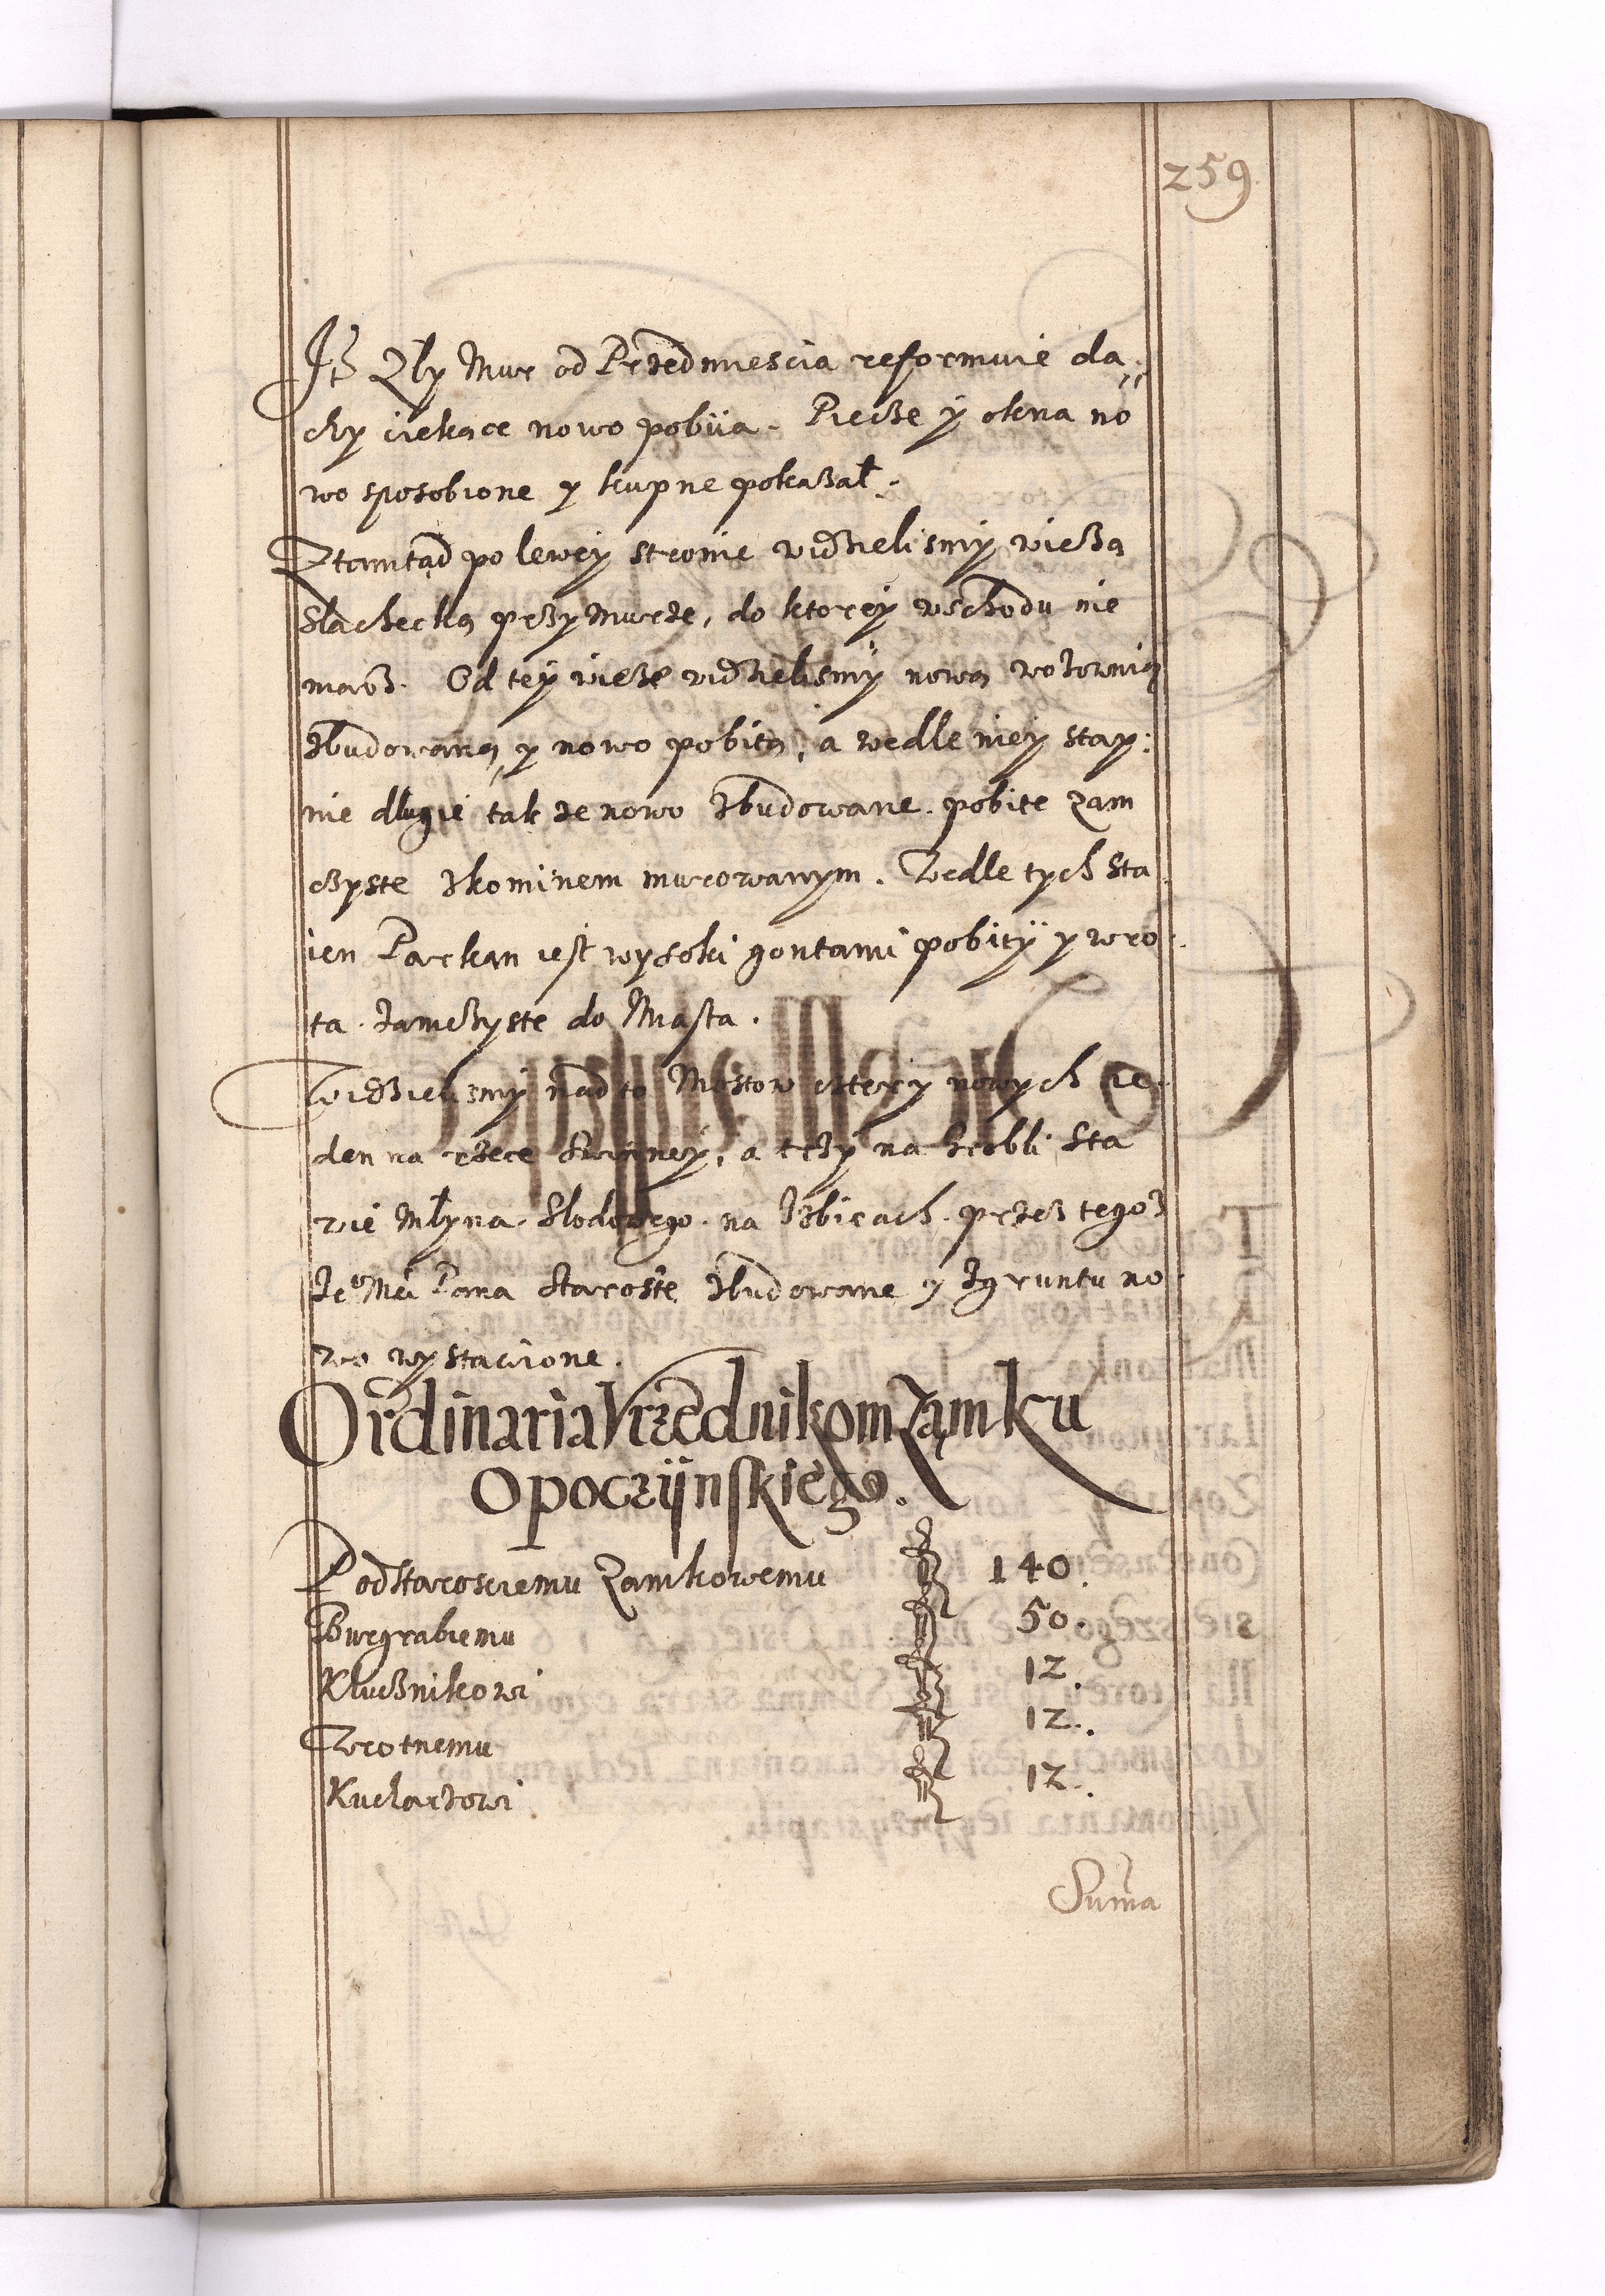 259
Iß Zły Mur od Przedmiescia reformuie da„
chy ciekące nowo pobiia. Piecße y okna no
wo sposobione y kupne pokaßał.
Ztamtąd po lewey stronie widzielismy wießą
Slachecką przy Murze, do ktorey wschodu nie
maß. Od tey wieße widzielismy nową wozownią
zbudowaną y nowo pobitą, a wedle niey stay:
nie długie takze nowo zbudowane pobite zam
czyste z kominem murowanym. Wedle tych sta
ien Parkan iest wysoki gontami pobity y wro
ta zamczyste do Miasta.
Widzielismy nadto Mostow cztery nowych ie
den na rzece a trzy na Grobli Sta
wie Młyna Słodowego na Izbicach przeß tegoß
Je⁰ Mci Pana Starostę zbudowane y z gruntu no
wo wystawione.
Ordinaria Vrzędnikom Zamku
Opoczijnskiego.
Podstarosciemu Zamkowemu 140.
Burgrabiemu 50.
Klucznikowi 12.
Wrotnemu 12.
Kucharzowi 12.
Suma